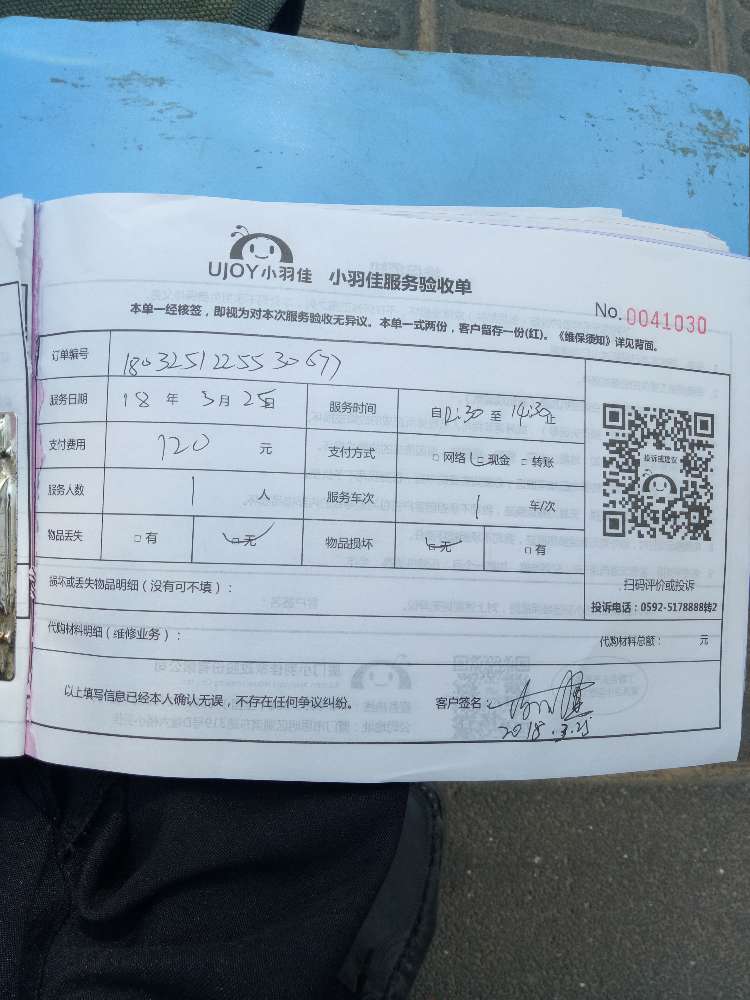 UJOY小羽佳 小羽佳服务验收单
No.0041030
本单一经核签，即视为对本次服务验收无异议。本单一式两份，客户留存一份(红)。《维保须知》详见背面。
订单编号 1803251225530677
服务日期 18 年 3月 25日 服务时间 自12:30 至 14:30止
支付费用 120 元 支付方式 □ 网络 □ 现金 □ 转账
服务人数 1 人 服务车次 1 车/次
物品丢失 □ 有 □ 无 物品损坏 □ 无 □ 有
投诉或建议
扫码评价或投诉
投诉电话：0592-5178888转2
损坏或丢失物品明细（没有可不填）：
代购材料明细（维修业务）： 代购材料总额： 元
以上填写信息已经本人确认无误，不存在任何争议纠纷。 客户签名：
2018.3.25